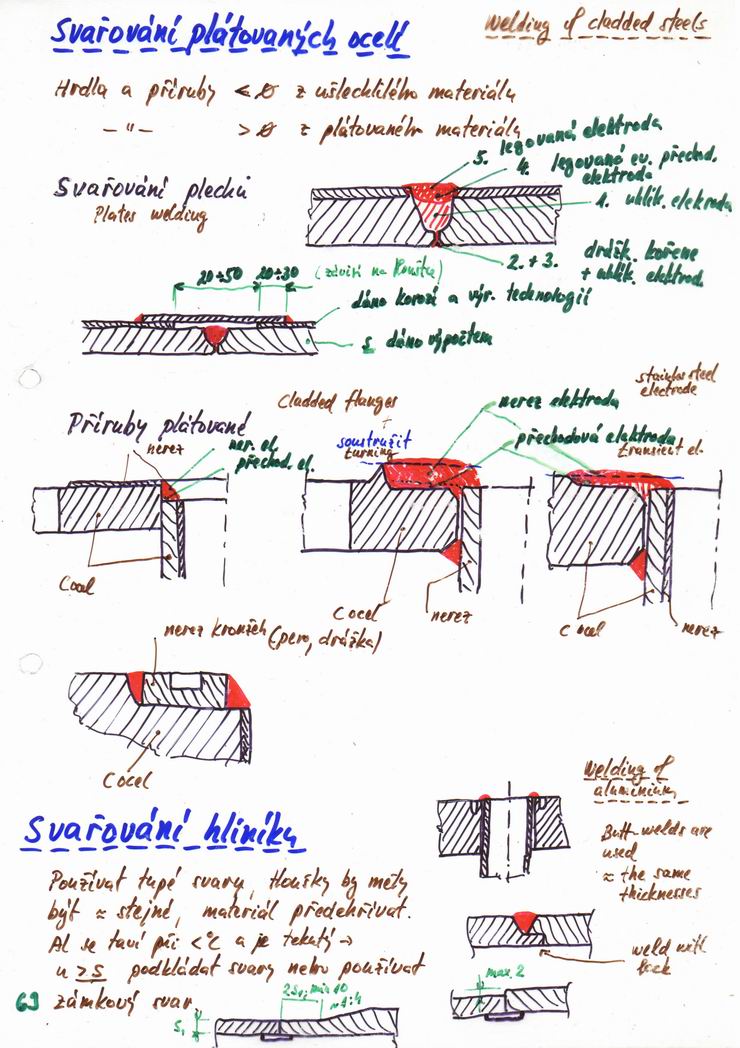 Svařování plátovaných ocelí
Welding of cladded steels
Hrdla a příruby < ø z ušlechtilého materiálu
– " – > ø z plátovaného materiálu
5. legovaná elektroda
4. legované ev. přechod. elektroda
Svařování plechů
Plates welding
1. uhlík. elekroda
2. + 3. drážk. kořene
+ uhlík. elektrod.
20÷50 20÷30 (závisí na tloušťce)
dáno korozí a výr. technologií
s dáno výpočtem
stainles steel
electrode
Cladded flanges
nerez elektroda
Příruby plátované
nerez
ner. el.
přechod. el.
soustružit
turning
přechodová elektroda
transient el.
C ocel
C ocel
nerez
C ocel
nerez
nerez kroužek (pero, drážka)
C ocel
Welding of
aluminium
Svařování hliníku
Butt-welds are
used
≈ the same
thicknesses
Používat tupé svary, tloušky by měly
být ≈ stejné, materiál předehřívat.
Al se taví při < °C a je tekutý →
u > s podkládat svary nebo používat
zámkový svar.
weld with
lock
max. 2
2s₁, min 10
~1:4
s₁
69